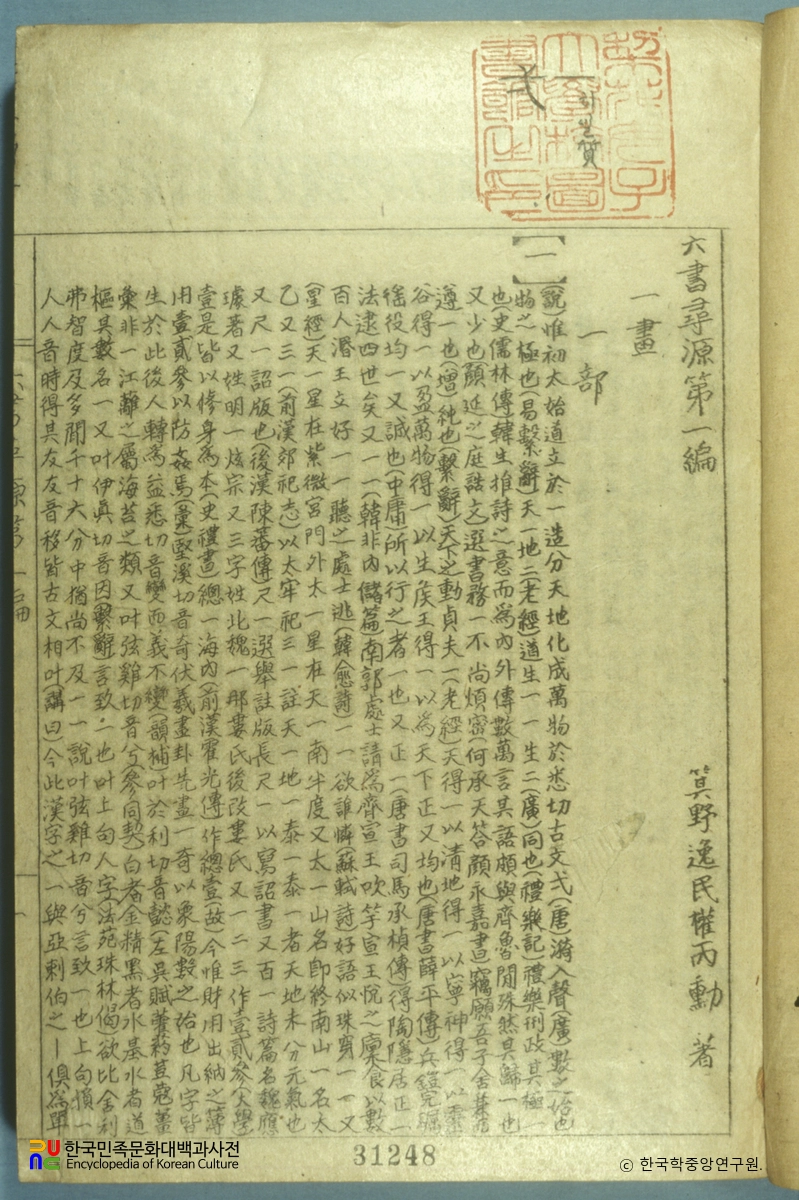 弌
六書尋源第一編
一畫
箕野逸民權丙勳 著
一部
【一】
(說)惟初太始道立於一造分天地化成萬物於悉切古文弌(唐)漪入聲(廣)數之始也
物之極也(易繫辭)天一地二(老經)道生一一生二(廣)同也(禮樂記)禮樂刑政其極一
也史儒林傳韓生推詩之意而為內外傳數萬言其語頗與齊魯間殊然其歸一也
又少也(顏延之庭誥文)選書務一不尚煩密何承天答顏永嘉書竊願吾子舍兼而
遵一也(增)純也(繫辭)天下之動貞夫一(老經)天得一以淸地得一以寧神得一以靈
谷得一以盈萬物得一以生侯王得一以為天下正又均也(唐書薛平傳)兵鎧完礪
徭役均一又誠也(中庸)所以行之者一也又正一(唐書司馬承楨傳)得陶隱居正一
法逮四世矣又一一(韓非內儲篇)南郭處士請為齊宣王吹竽宣王悅之廩食以數
百人湣王立好一一聽之處士逃(韓愈詩)一一欲誰憐(蘇軾詩)好語似珠穿一一又
(星經)天一星在紫微宮門外太一星在天一南半度又太一山名卽終南山一名太
乙又三一(前漢郊祀志)以太牢祀三一註天一地一泰一泰一者天地未分元氣也
又尺一詔版也後漢陳蕃傳)尺一選舉註版長尺一以寫詔書又百一詩篇名魏應
璩著又姓明一炫宗又三字姓北魏一那婁氏後改婁氏又一二三作壹貳參大學
壹是皆以修身為本(史禮書)總一海內(前漢霍光傳作總壹(故)今惟財用出納之簿
用壹貳參以防姦焉(彙)堅溪切音奇伏羲畫卦先畫一奇以象陽數之始也凡字皆
生於此後人轉為益悉切音變而義不變(韻補)叶於利切音懿(左吳賦藿蒳荳蔻薑
彙非一江蘺之屬海苔之類又叶弦雞切音兮(參同契)白者金精黑者水基水者道
樞其數名一又叶伊眞切音因(繫辭)言致一也叶上句人字(法苑珠林偈欲比舍利
弗智度及多聞千十六分中猶尚不及一一說叶弦雞切音兮言致一也上句愼一
人人音時得其友友音移皆古文相叶(講曰)今此漢字之一與亞剌伯之1俱為單
31248
한국민족문화대백과사전
Encyclopedia of Korean Culture
ⓒ 한국학중앙연구원.